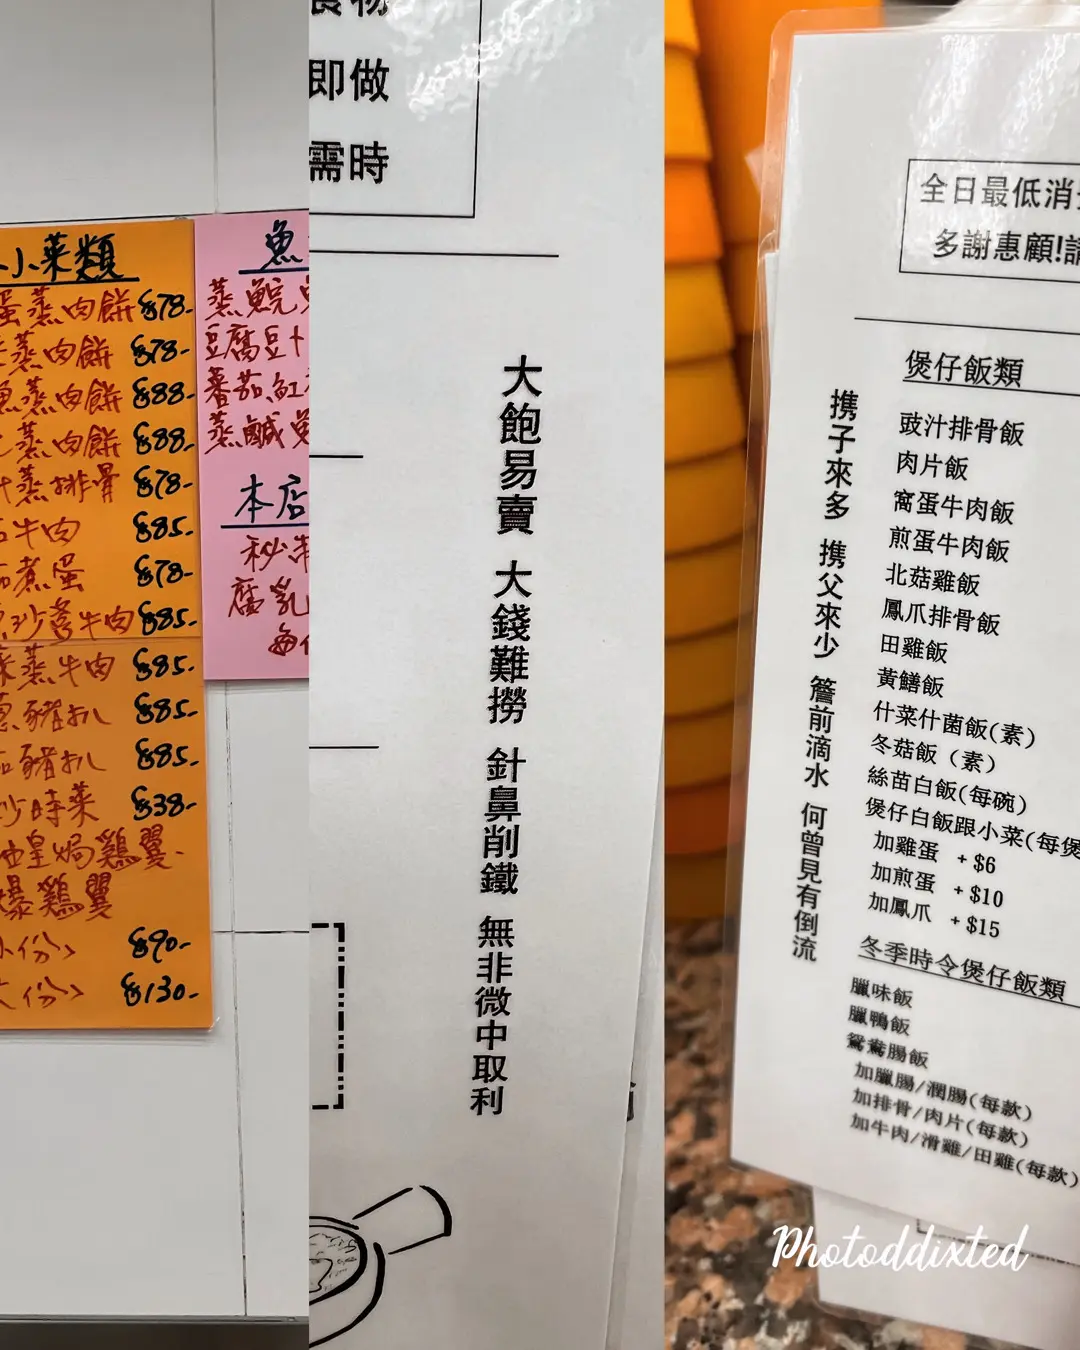 小菜類
蛋蒸肉餅 $78-
蒸肉餅 $78-
魚蒸肉餅 $88-
蒸肉餅 $88-
汁蒸排骨 $78-
牛肉 $85-
煮蛋 $78-
沙爹牛肉 $85-
菜蒸牛肉 $85-
蔥豬扒 $85-
豬扒 $85-
炒時菜 $38-
油皇焗鷄翼
爆鷄翼
小份 $90-
大份 $130-
魚
蒸鯇
豆腐豆卜
蕃茄紅
蒸鹹
本店
秘制
腐乳
每
食物
即做
需時
大飽易賣 大錢難撈 針鼻削鐵 無非微中取利
全日最低消
多謝惠顧!請
煲仔飯類
豉汁排骨飯
肉片飯
窩蛋牛肉飯
煎蛋牛肉飯
北菇雞飯
鳳爪排骨飯
田雞飯
黃鱔飯
什菜什菌飯(素)
冬菇飯(素)
絲苗白飯(每碗)
煲仔白飯跟小菜(每煲
加雞蛋 +$6
加煎蛋 +$10
加鳳爪 +$15
冬季時令煲仔飯類
臘味飯
臘鴨飯
鴛鴦腸飯
加臘腸/潤腸(每款)
加排骨/肉片(每款)
加牛肉/滑雞/田雞(每款)
携子來多 携父來少 簷前滴水 何曾見有倒流
Photoddixted